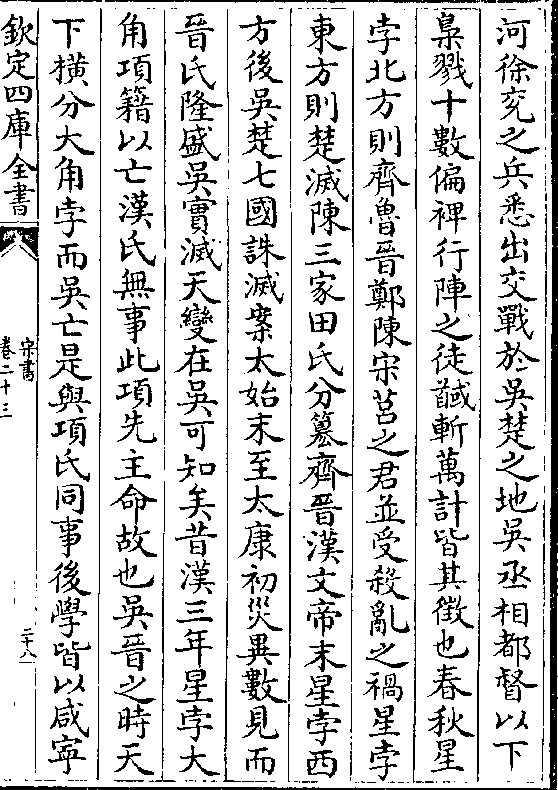 河徐兖之兵悉出交戰於吳楚之地吳丞相都督以下
梟戮十數偏裨行陣之徒馘斬萬計皆其徵也春秋星
孛北方則齊魯晉鄭陳宋莒之君並受殺亂之禍星孛
東方則楚滅陳三家田氏分簒齊晉漢文帝末星孛西
方後吳楚七國誅滅案太始末至太康初災異數見而
晉氏隆盛吳實滅天變在吳可知矣昔漢三年星孛大
角項籍以亡漢氏無事此項先主命故也吳晉之時天
下横分大角孛而吳亡是與項氏同事後學皆以咸寜
欽定四庫全書
宋書
卷二十三
二十八